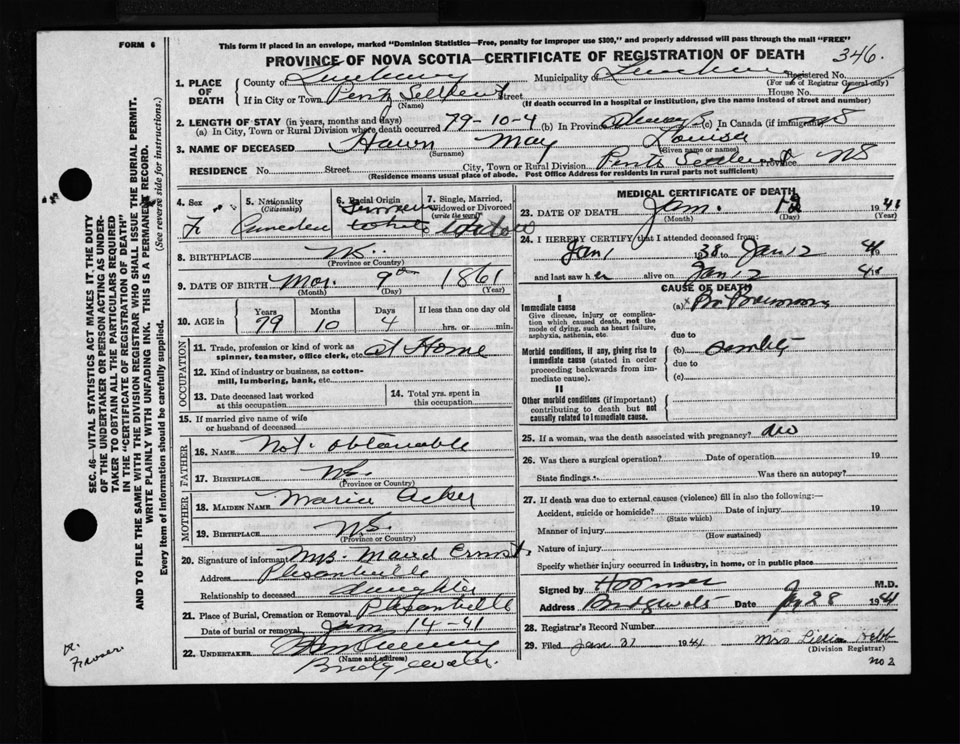 FORM 6
This form if placed in an envelope, marked "Dominion Statistics—Free, penalty for improper use $300," and properly addressed will pass through the mail "FREE"
PROVINCE OF NOVA SCOTIA—CERTIFICATE OF REGISTRATION OF DEATH 346.
1. PLACE OF DEATH
County of Lunenburg Municipality of Registered No.
(For use of Registrar General only)
If in City or Town Street House No.
(Name) (If death occurred in a hospital or institution, give the name instead of street and number)
2. LENGTH OF STAY (in years, months and days)
(a) In City, Town or Rural Division where death occurred 79-10-4 (b) In Province (c) In Canada (if immigrant)
3. NAME OF DECEASED Hawn May Louisa
(Surname) (Given name or names)
RESIDENCE No. Street City, Town or Rural Division Province NS
(Residence means usual place of abode. Post Office Address for residents in rural parts not sufficient)
4. Sex F
5. Nationality (Citizenship)
6. Racial Origin White
7. Single, Married, Widowed or Divorced (write the word)
8. BIRTHPLACE N.S.
(Province or Country)
9. DATE OF BIRTH Mar. 9th 1861
(Month) (Day) (Year)
10. AGE in Years Months Days If less than one day old
79 10 4 hrs. or min.
OCCUPATION
11. Trade, profession or kind of work as spinner, teamster, office clerk, etc. at Home
12. Kind of industry or business, as cotton-mill, lumbering, bank, etc.
13. Date deceased last worked at this occupation
14. Total yrs. spent in this occupation
15. If married give name of wife or husband of deceased
FATHER
16. NAME Not obtanable
17. BIRTHPLACE N.S.
(Province or Country)
MOTHER
18. MAIDEN NAME Maria Acker
19. BIRTHPLACE N.S.
(Province or Country)
20. Signature of informant Mrs. Maud Ernst
Address
Relationship to deceased daughter
21. Place of Burial, Cremation or Removal
Date of burial or removal Jan 14-41
22. UNDERTAKER
(Name and address)
Bridgewater
MEDICAL CERTIFICATE OF DEATH
23. DATE OF DEATH Jan. 1941
(Month) (Day) (Year)
24. I HEREBY CERTIFY that I attended deceased from:
Jan 1 1938 to Jan 12 19 41
and last saw her alive on Jan 12 41
CAUSE OF DEATH
I
Immediate cause
Give disease, injury or complication which caused death, not the mode of dying, such as heart failure, asphyxia, asthenia, etc.
(a)
due to
Morbid conditions, if any, giving rise to immediate cause (stated in order proceeding backwards from immediate cause).
(b)
due to
(c)
II
Other morbid conditions (if important) contributing to death but not causally related to immediate cause.
25. If a woman, was the death associated with pregnancy? no
26. Was there a surgical operation? Date of operation 19
State findings Was there an autopsy?
27. If death was due to external causes (violence) fill in also the following:—
Accident, suicide or homicide? Date of injury 19
(State which)
Manner of injury
(How sustained)
Nature of injury
Specify whether injury occurred in industry, in home, or in public place
Signed by M.D.
Address Date 28 1941
28. Registrar's Record Number
29. Filed Jan 31 1941 Mrs. Webb
(Division Registrar)
no 2
SEC. 46—VITAL STATISTICS ACT MAKES IT THE DUTY
OF THE UNDERTAKER OR PERSON ACTING AS UNDER-
TAKER TO OBTAIN ALL THE PARTICULARS REQUIRED
IN THE "CERTIFICATE OF REGISTRATION OF DEATH"
AND TO FILE THE SAME WITH THE DIVISION REGISTRAR WHO SHALL ISSUE THE BURIAL PERMIT.
WRITE PLAINLY WITH UNFADING INK. THIS IS A PERMANENT RECORD.
Every item of information should be carefully supplied. (See reverse side for instructions.)